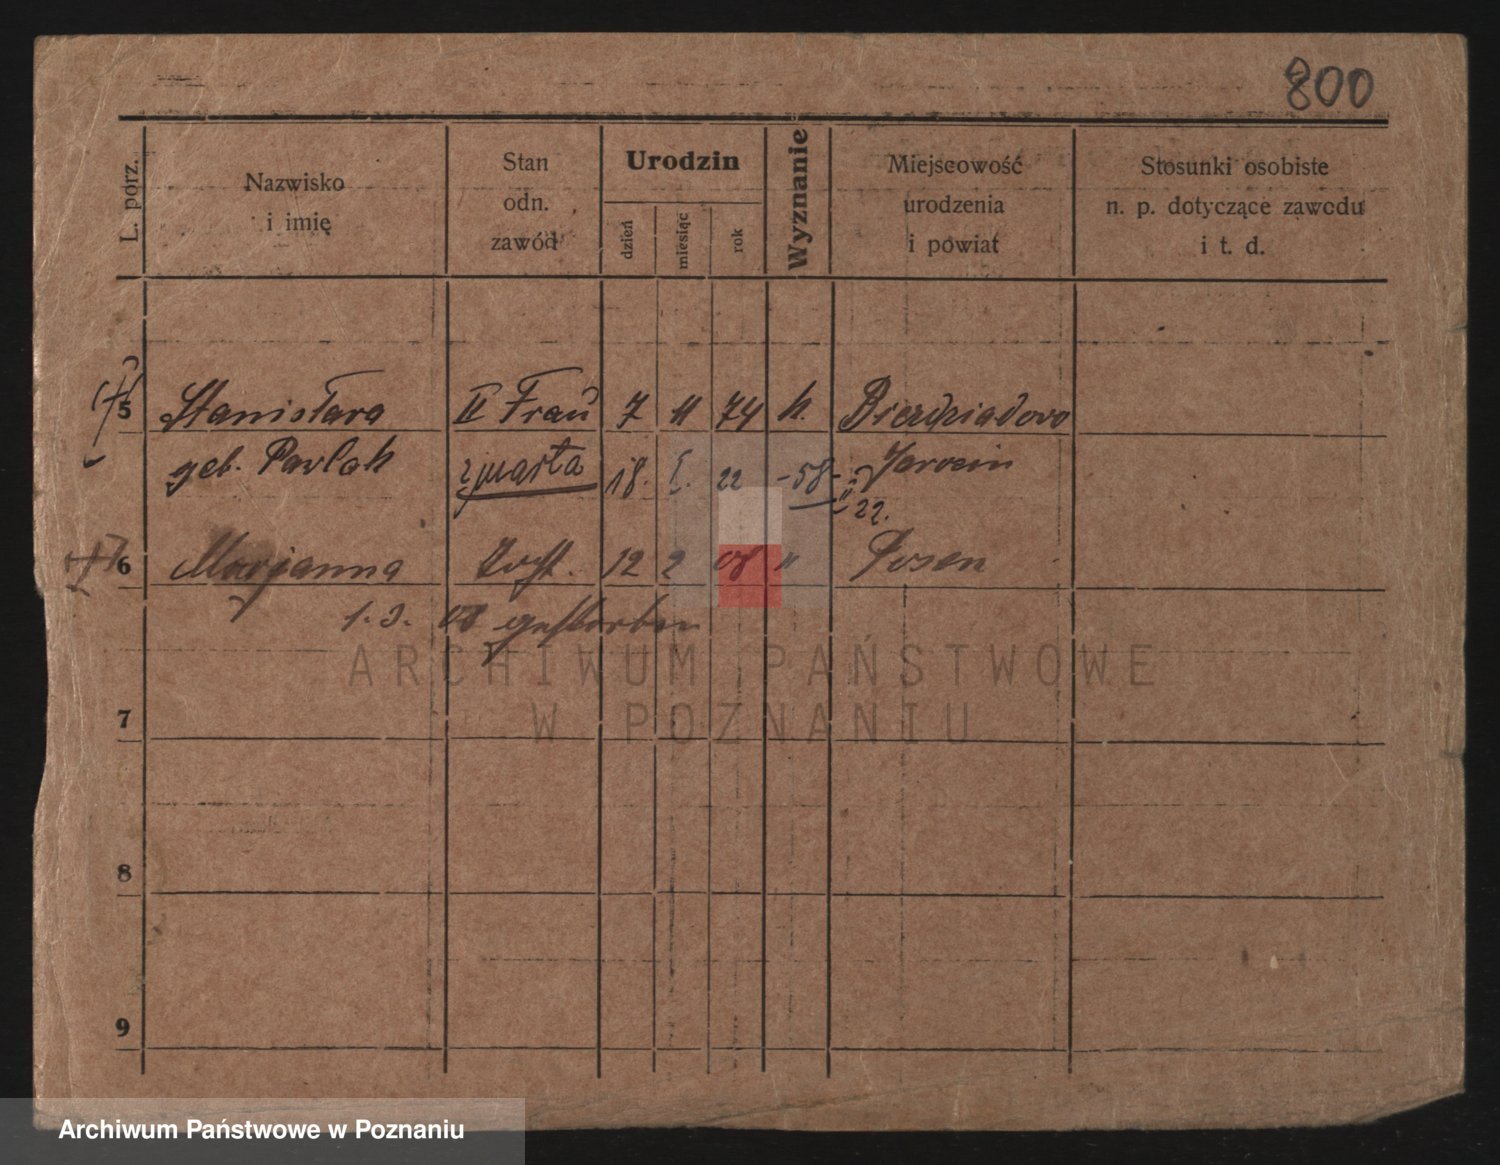 800
L. porz.
Nazwisko
i imię
Stan
odn.
zawód
Urodzin
dzień
miesiąc
rok
Wyznanie
Miejscowość
urodzenia
i powiat
Stosunki osobiste
n. p. dotyczące zawodu
i t. d.
5 Stanisłava II Frau 7 11 74 k. Bierdziadovo
geb. Pavlak zmarła 18. I. 22 -58- Jarocin
II 22.
6 Marjanna Tocht. 12 2 08 " Posen
1. 3. 08 gestorben
7
8
9
ARCHIWUM PAŃSTWOWE
W POZNANIU
Archiwum Państwowe w Poznaniu